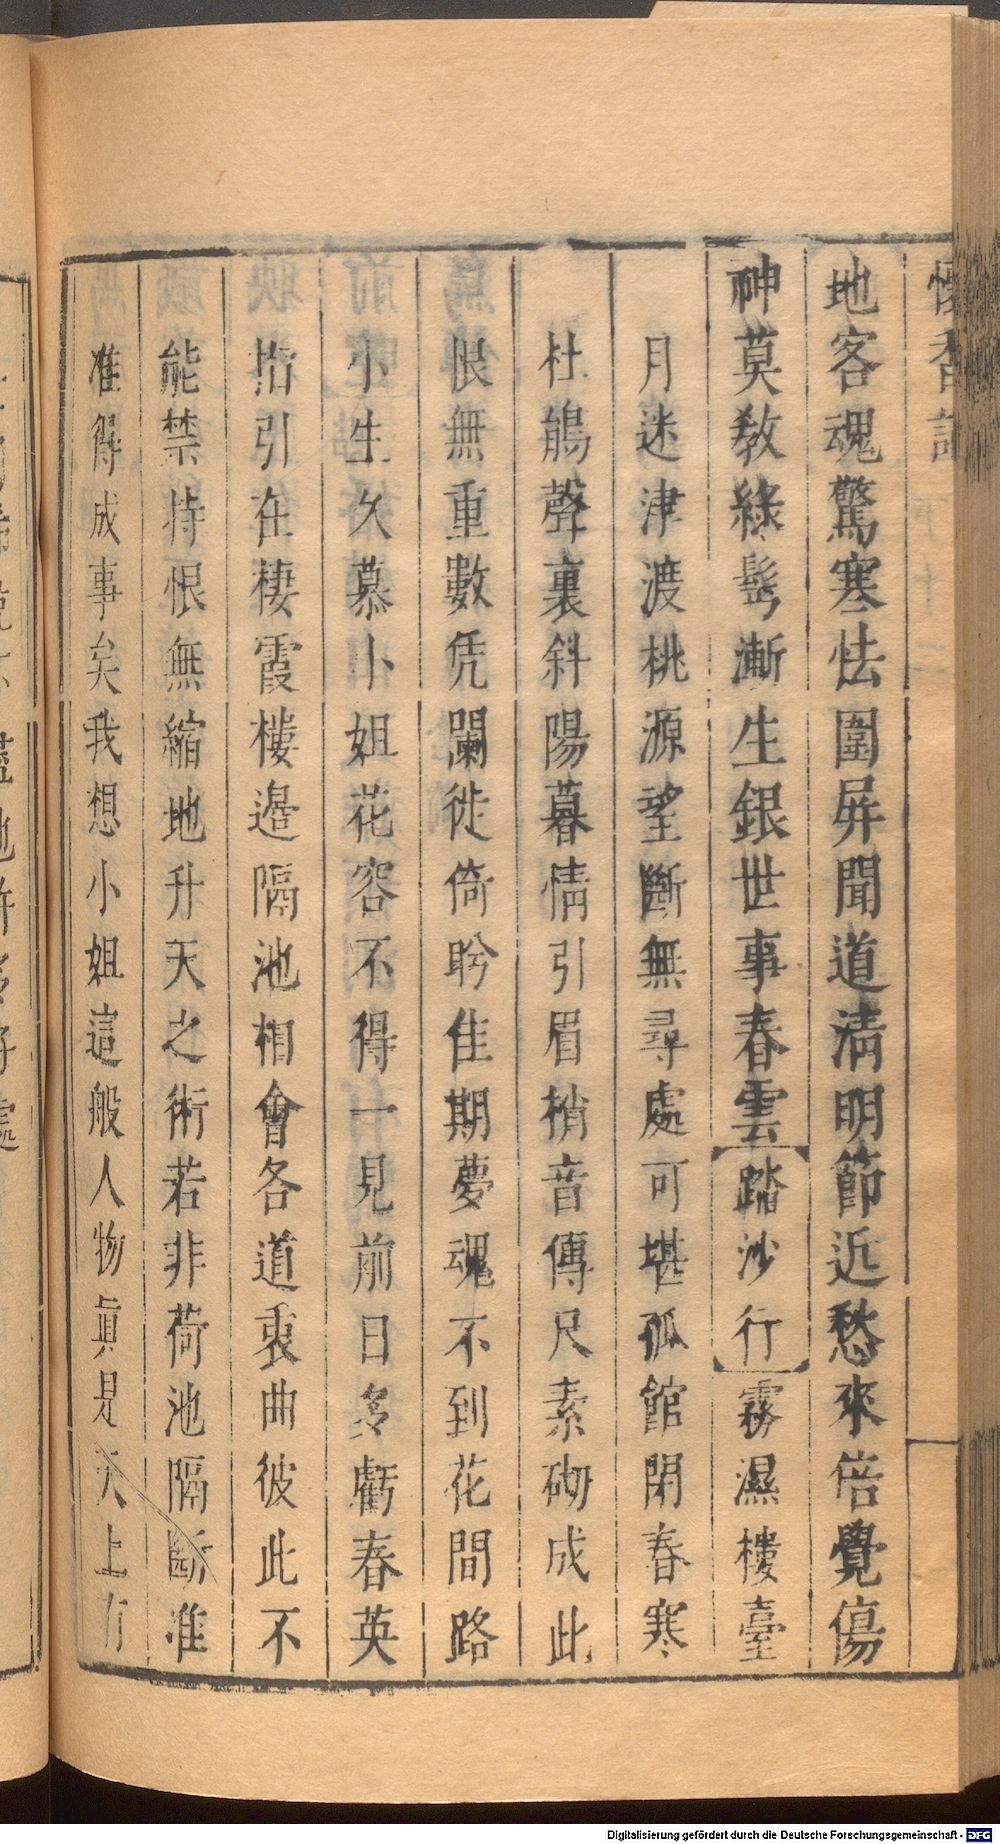 懷香記
地客魂驚寒怯圍屏聞道清明節近愁來倍覺傷
神莫教綠髩漸生銀世事春雲【踏沙行】霧濕樓臺
月迷津渡桃源望斷無尋處可堪孤館閉春寒
杜鵑聲裏斜陽暮情引眉梢音傳尺素砌成此
恨無重數凭闌徙倚盻佳期夢魂不到花間路
小生久慕小姐花容不得一見前日多虧春英
指引在棲霞樓邉隔池相會各道衷曲彼此不
能禁持恨無縮地升天之術若非荷池隔斷准
准得成事矣我想小姐這般人物眞是天上有
Digitalisierung gefördert durch die Deutsche Forschungsgemeinschaft - DFG